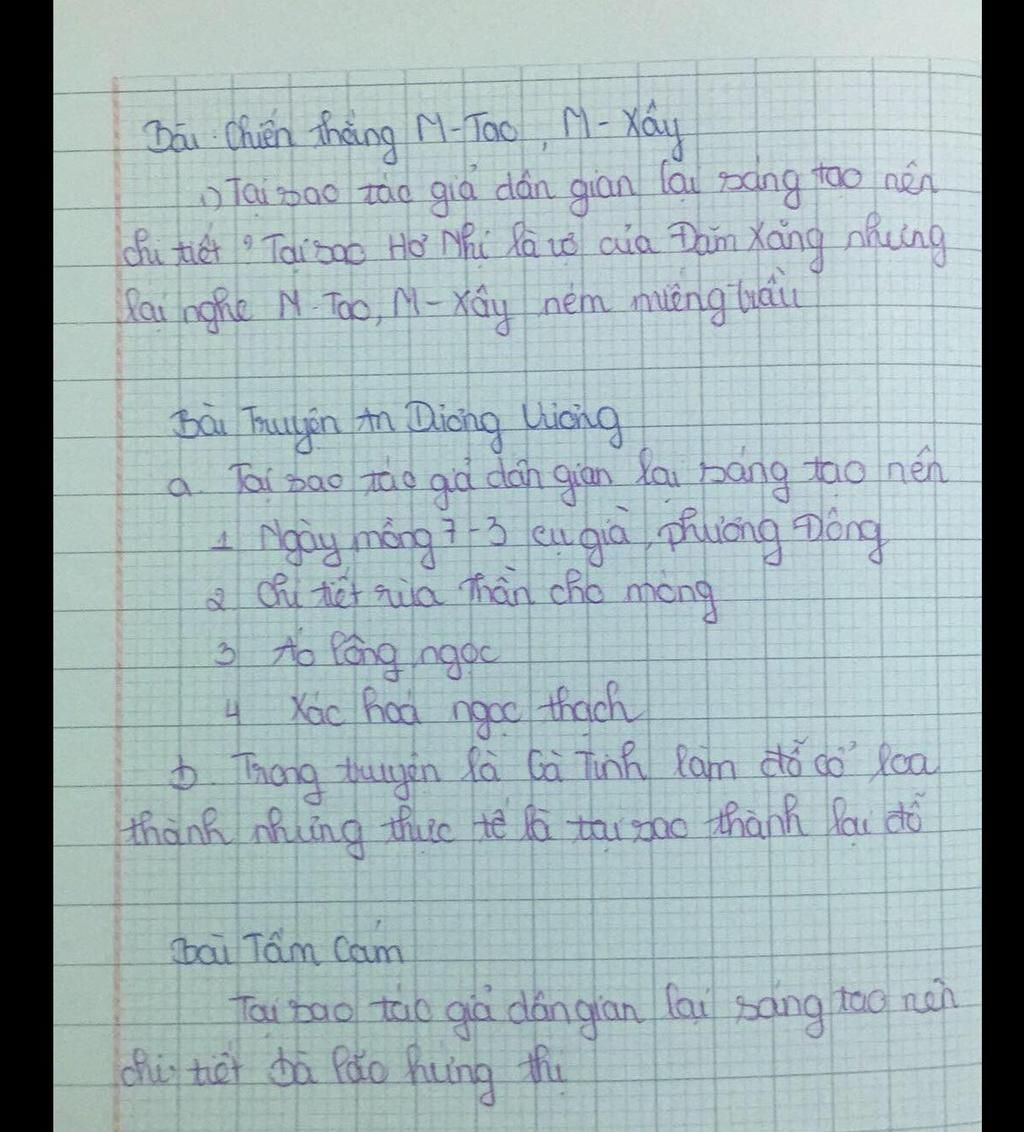 Bài Chiến thắng M-Tao, M-Xây
1) Tại sao tác giả dân gian lại sáng tạo nên
chi tiết ? Tại sao Hơ Nhị là vợ của Đăm Xăng nhưng
lại nghe M-Tao, M-Xây ném miếng trầu
Bài Truyện An Dương Vương
a. Tại sao tác giả dân gian lại sáng tạo nên
1 Ngày mồng 7-3 cụ già, phương Đông
2 Chi tiết rùa thần cho móng
3 Áo lông ngọc
4 Xác hoá ngọc thạch
b. Trong truyện là Cà Tinh làm đổ cổ loa
thành nhưng thực tế là tại sao thành lại đổ
Bài Tấm Cám
Tại sao tác giả dân gian lại sáng tạo nên
chi tiết bà lão hưng thị